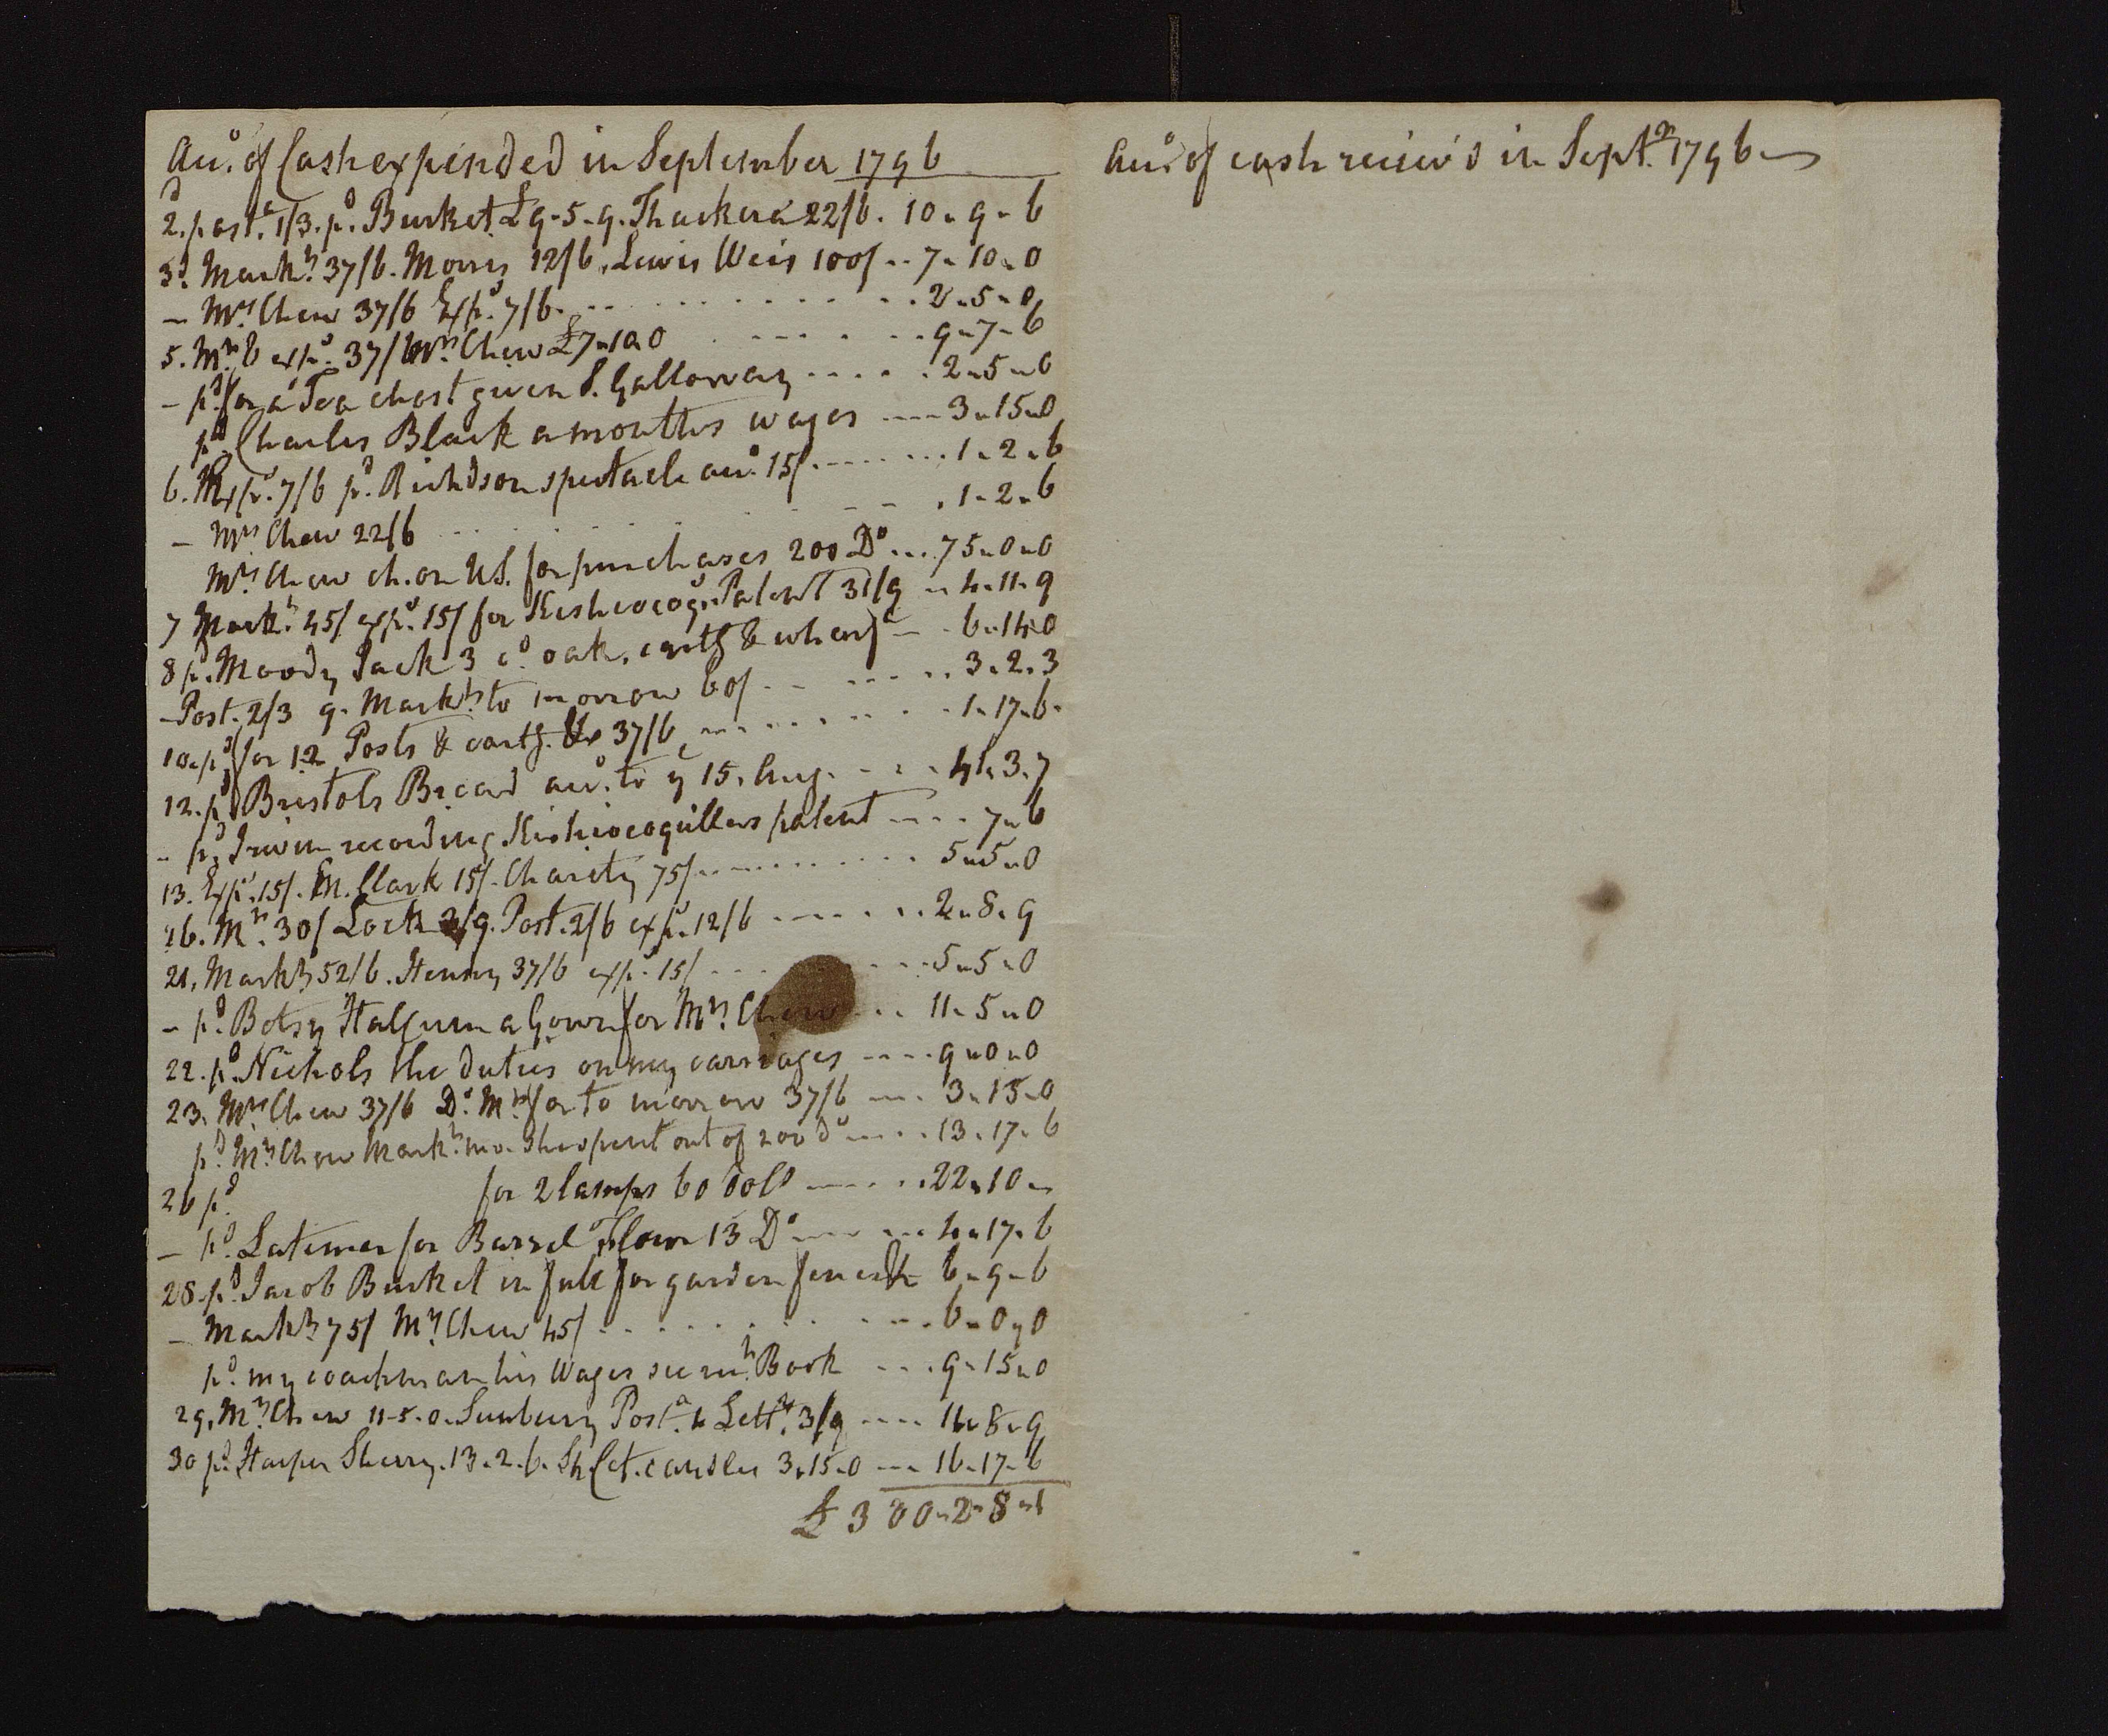 Acco. of Cash expended in September 1796
2d. posta. 1/3. pd. Burket £9-5-9. Thackera 22/6. 10-9-6
3d. Markt. 37/6. Morris 12/6. Lewis Weis 100/ .. 7-10-0
- Mrs. Chew 37/6 Exps. 7/6 ... 2-5-0
5. Mrs. C exps. 37/6 Mrs. Chew £7-10-0 ... 9-7-6
- pd. for a Tea chest given S. Galloway ..... 2-5-0
pd. Charles Black a months wages ---- 3-15-0
6. Exps. 7/6 pd. Richdson spectacle acco. 15/ ....... 1-2-6
- Mrs. Chew 22/6 ... 1-2-6
Mrs. Chew ch. on US. for purchases 200 Do ... 75-0-0
7 Markt. 45/ exps. 15/ for Kishicocogs. Patent 31/9 - 4-11-9
8 pd. Moody Jack 3 cd. oak, cartg & wharfe - - 6-14-0
- Post. 2/3 9. Markt. to morrow 60/ ... 3-2-3
10. pd. for 12 Posts & cartg. &c 37/6 ... 1-17-6
12. pd. Bristols Bread acco. to ye 15. Aug. ... 4-3-7
- pd. Irwin recording Kishicocoquillas patent .... 7-6
13. Exps. 15/. M. Clark 15/. Charity 75/ ... 5-5-0
16. Mt. 30/ Lock 3/9. Post. 2/6 exps. 12/6 ... 2-8-9
21. Markt 52/6. Henry 37/6 exps. 15/ ... 5-5-0
- pd. Betsy Halfum a Gown for Mrs. Chew ... 11-5-0
22. pd. Nichols the duties on my carriages .... 9-0-0
23. Mrs. Chew 37/6 Do. Mt. for to morrow 37/6 ... 3-15-0
pd. Mrs. Chew Markt. mo. she spent out of 200 Do ... 13-17-6
26 pd. for 2 lamps 60 doll ... 22-10-
- pd. Latimer for Barrel Flour 13 Do ... 4-17-6
28. pd. Jacob Burket in full for garden fence &c 6-9-6
- Markt 75/ Mrs. Chew 45/ ... 6-0-0
pd. my coachman his Wages see mt. Book ... 9-15-0
29. Mrs. Chew 11-5-0. Sunbury Posta. 4 Lettrs. 3/9 .... 11-8-9
30 pd. Harper Sherry. 13-2-6. Sh. Cet. candles 3-15-0 ... 16-17-6
£ 300-2-8-1
Acco. of cash receiv'd in Septr. 1796